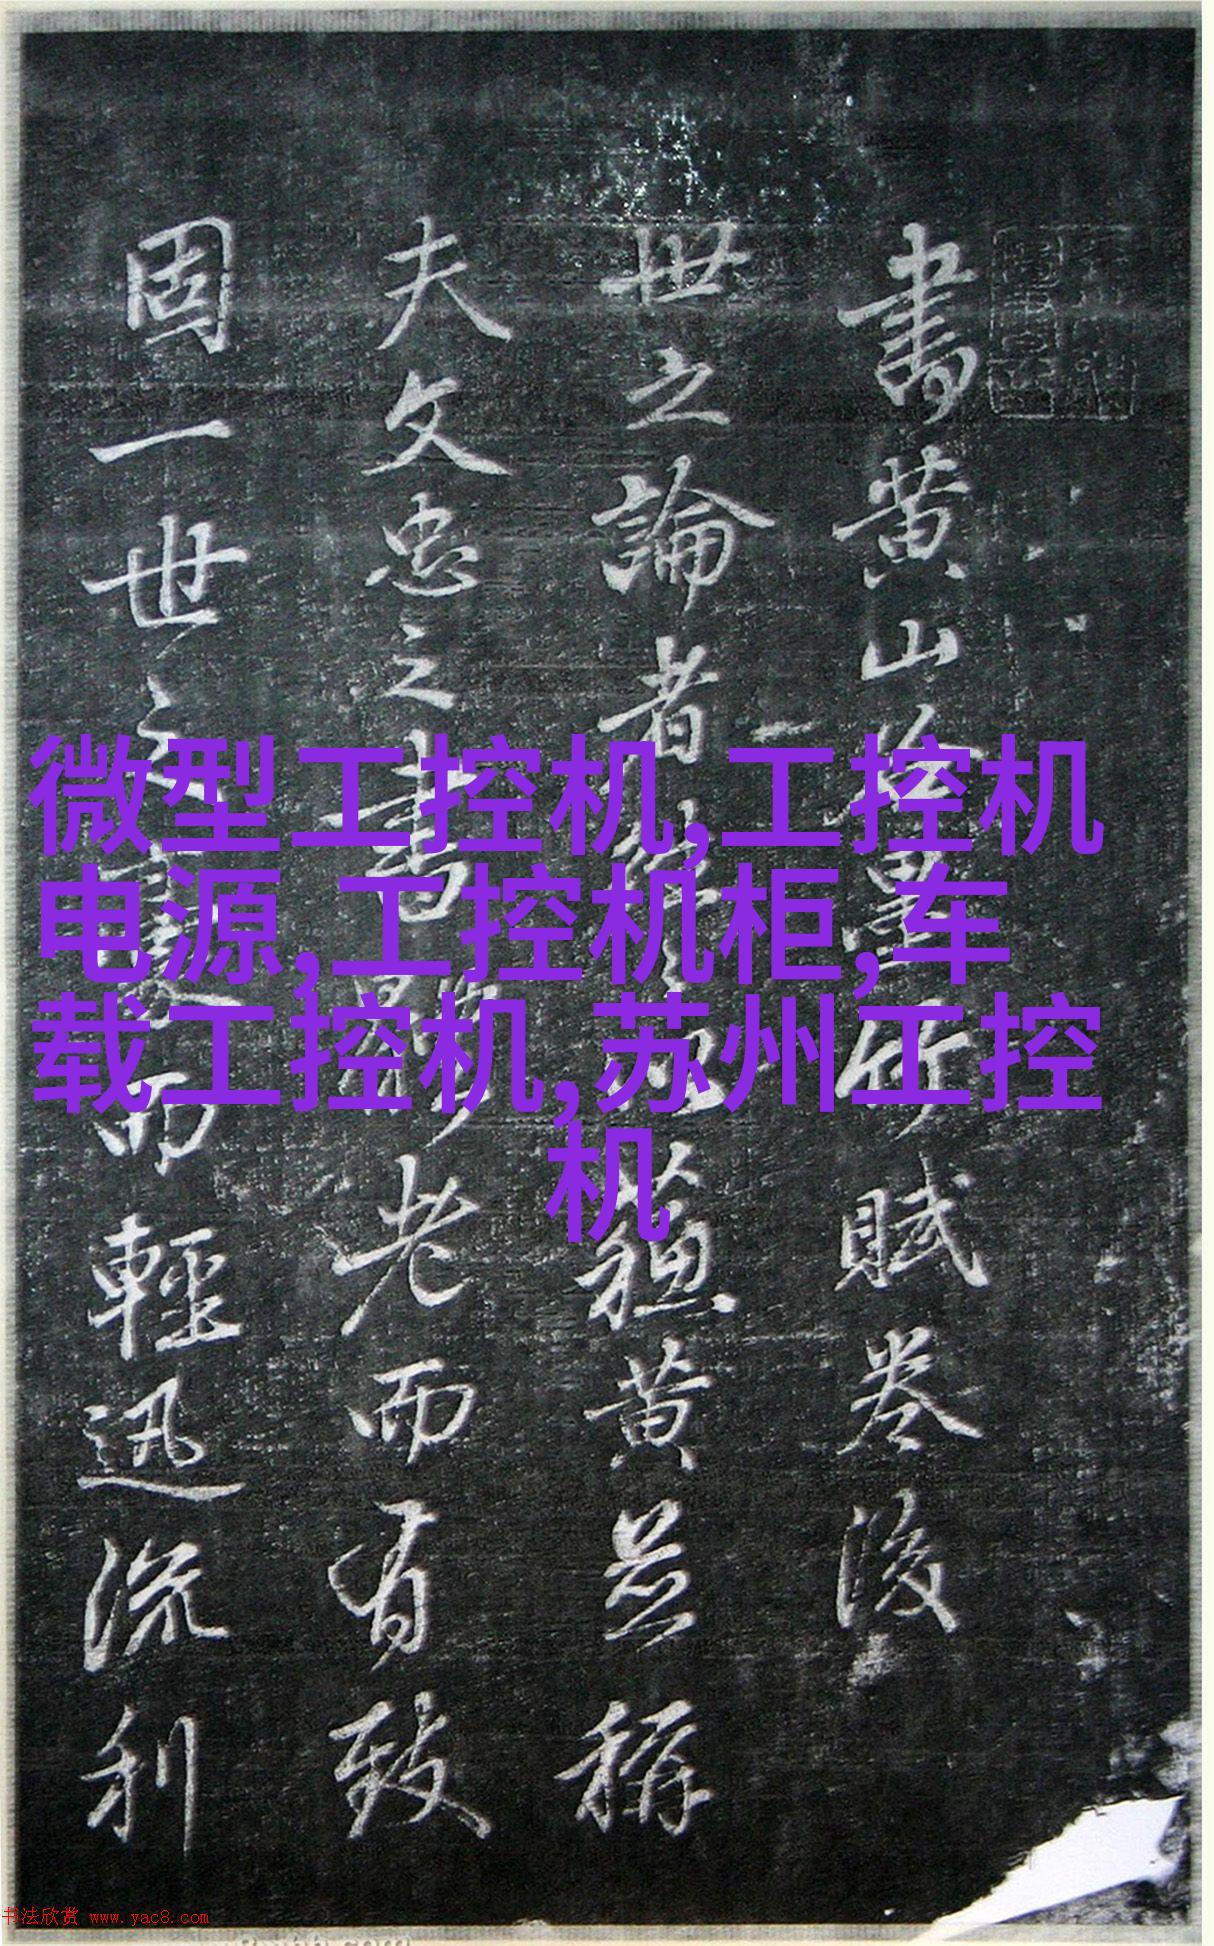 書黄山谷墨竹賦卷後
世之論者
蘓黄並稱
夫文忠之書
老而有致
固一世之
而輕迅流利
微型工控机,工控机
电源,工控机柜,车
载工控机,苏州工控
机
书法欣赏 www.yac8.com